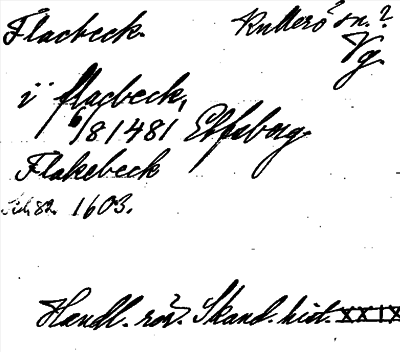 Flacbeck. Kullerö sn.? Vg.
i flacbeck,
6/8 1481 Elfsborg
Flakebeck
1603.
Handl. rör. Skand. hist. XXIX